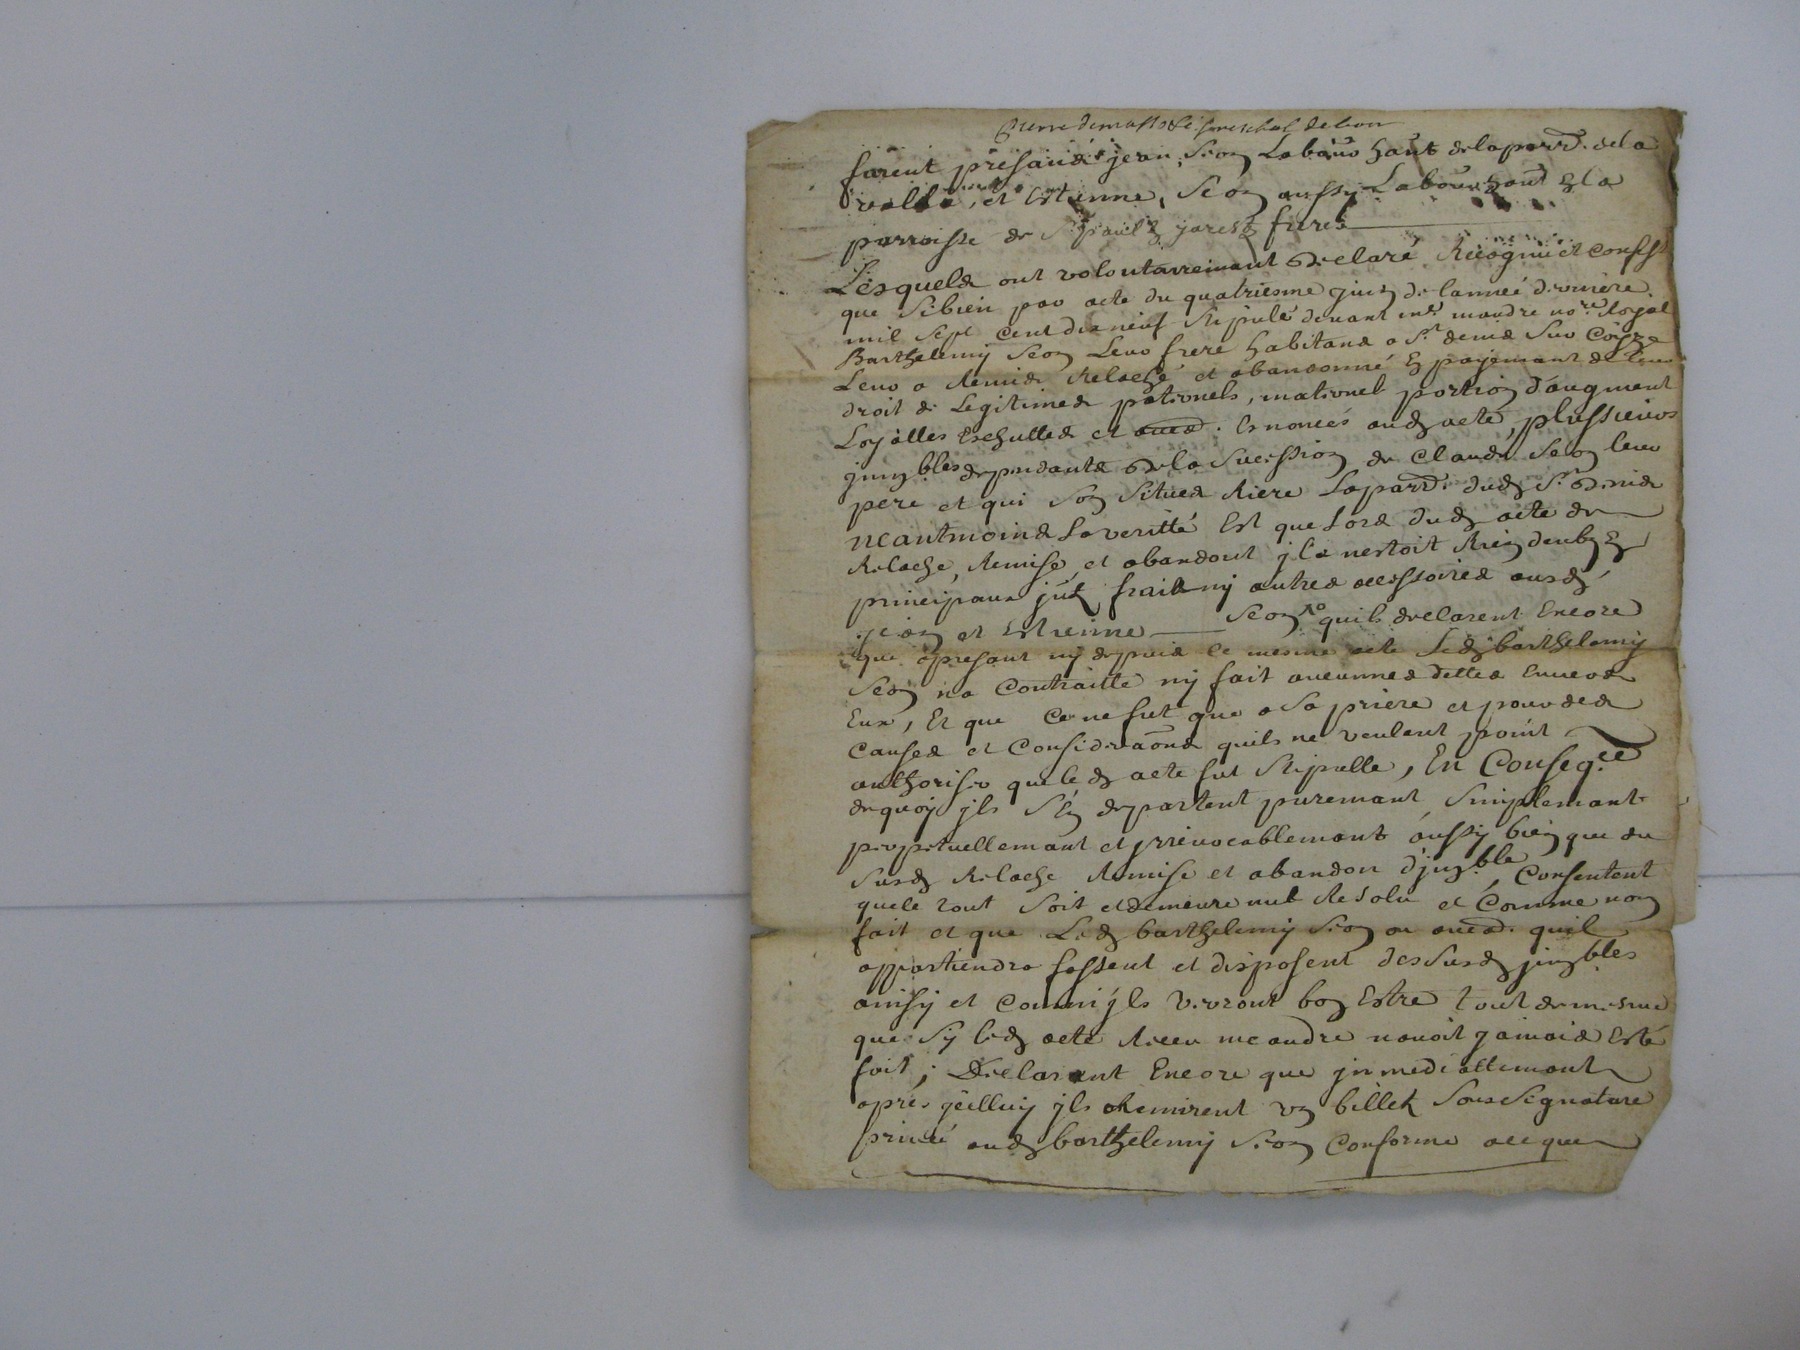 furent présants jean, Seon Labour hant delaparr.e dela
valla, et Estienne, Seon aussy Labour hand En la
parroisse de St paul En jarest freres
Lesquels ont volontairement Declaré Recognu et confessé
que Sebien par acte du quatriesme juin de lanneé derniere
mil Sept Cent dix neuf Stipulé devant me maudre nore Royal
Barthelemy Seon Leur frere habitand a St denis Sur Coize
Leur a Remis Relaché et abandonné En payemant de Leur
droit de Legitimes paternels, maternel portion d'augment
Loyalles Escheutes et autres. Enoncés aud acte, plussieurs
jmeubles dependants de la Sucession de Claude Seon leur
pere et qui Son Situes Riere Laparr.e dud St Denis
neantmoins Laveritté Est que Lors dud acte de
Relache, Remise, et abandont jl nestoit Rien deub En
principaux jnt frais ny autres accessoires ausd
jean et Estienne Seon quils declarent Encore
que apresant ny depuis le mesme acte Led barthelemy
Seon na Contraitte ny fait aucunnes dettes Envers
Eux, Et que Ce ne fut que a Sa priere et pour des
Causes et Consideraons quils ne veulent point
authoriser que led acte fut Stipulle, En Conseqce
dequoy jls S'en departent puremant Simplemant
perpetuellemant et jrrevocablemant aussy bien que du
Susd Relache Remise et abandon d'jmble, Consentent
quele tout Soit et demeure nul Resolu et Comme non
fait et que Led barthelemy Seon ou autres quil
appartiendra fassent et disposent des Susd jmbles
ainsy et Comm jls verront bon Estre tout de mesme
que Sy led acte Receu me audre navoit jamais Esté
fait; Declarant Encore que jmmediattemant
apres jcelluy jls Remirent un billet Sous Signature
privé aud barthelemy Seon Conforme ace que